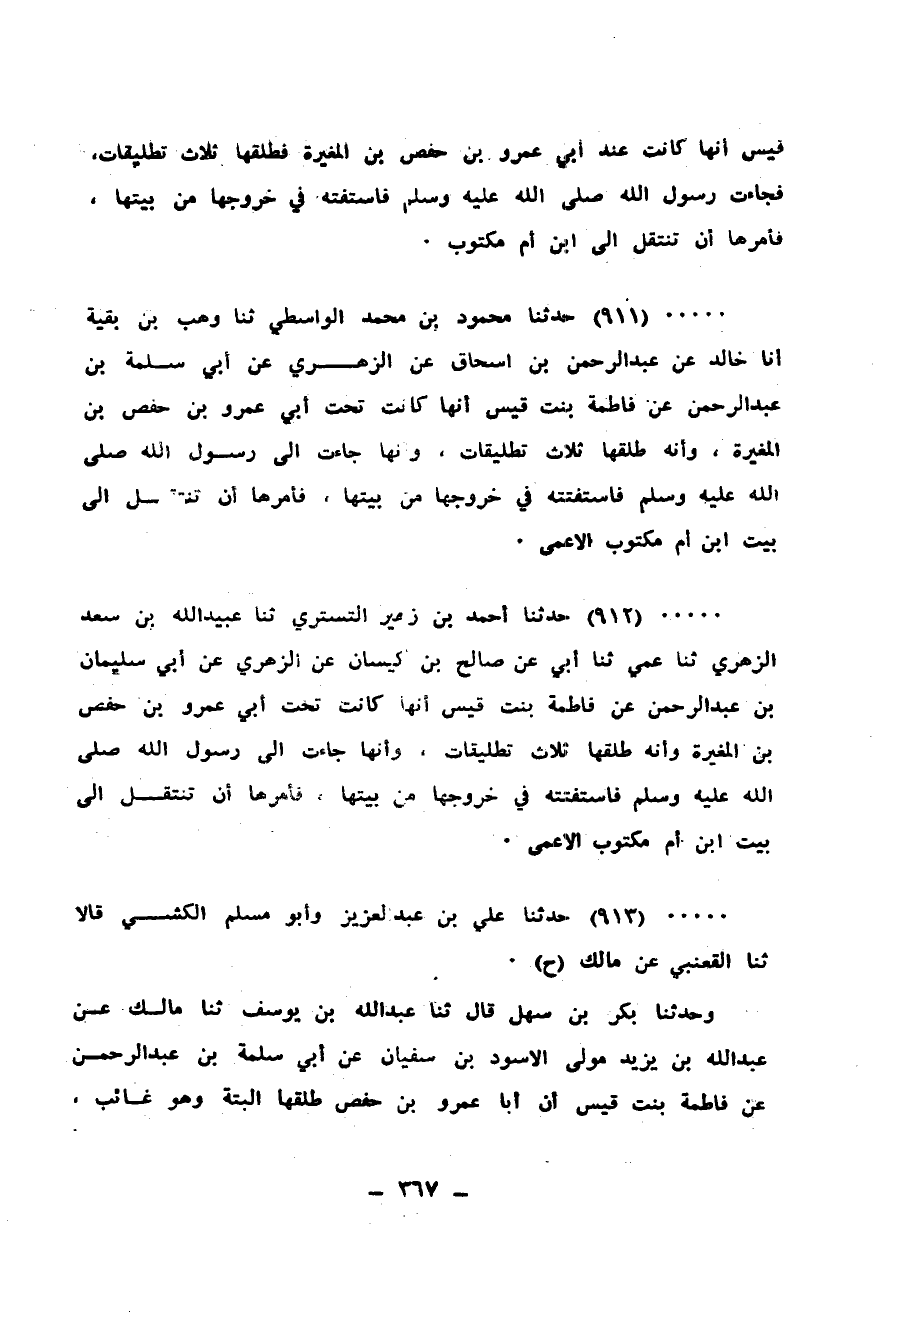 قيس أنها كانت عند أبي عمرو بن حفص بن المغيرة فطلقها ثلاث تطليقات،
فجاءت رسول الله صلى الله عليه وسلم فاستفته في خروجها من بيتها ،
فأمرها أن تنتقل الى ابن أم مكتوب ٠
٠٠٠٠٠ (٩١١) حدثنا محمود بن محمد الواسطي ثنا وهب بن بقية
أنا خالد عن عبدالرحمن بن اسحاق عن الزهـــري عن أبي سـلمة بن
عبدالرحمن عن فاطمة بنت قيس أنها كانت تحت أبي عمرو بن حفص بن
المغيرة ، وأنه طلقها ثلاث تطليقات ، و نها جاءت الى رسـول الله صلى
الله عليه وسلم فاستفتته في خروجها من بيتها ، فأمرها أن تنتقـل الى
بيت ابن أم مكتوب الاعمى ٠
٠٠٠٠٠ (٩١٢) حدثنا أحمد بن زهير التستري ثنا عبيدالله بن سعد
الزهري ثنا عمي ثنا أبي عن صالح بن كيسان عن الزهري عن أبي سليمان
بن عبدالرحمن عن فاطمة بنت قيس أنها كانت تحت أبي عمرو بن حفص
بن المغيرة وأنه طلقها ثلاث تطليقات ، وأنها جاءت الى رسول الله صلى
الله عليه وسلم فاستفتته في خروجها من بيتها ، فأمرها أن تنتقــل الى
بيت ابن أم مكتوب الاعمى ٠
٠٠٠٠٠ (٩١٣) حدثنا علي بن عبدالعزيز وأبو مسلم الكشــي قالا
ثنا القعنبي عن مالك (ح) ٠
وحدثنا بكر بن سهل قال ثنا عبدالله بن يوسف ثنا مالـك عـن
عبدالله بن يزيد مولى الاسود بن سفيان عن أبي سلمة بن عبدالرحمـن
عن فاطمة بنت قيس أن أبا عمرو بن حفص طلقها البتة وهو غـائب ،
– ٣٦٧ –